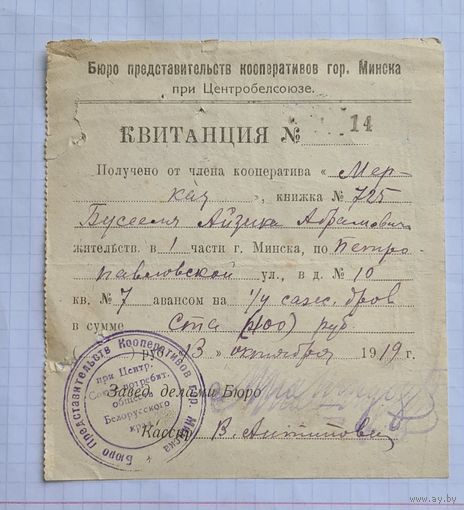 Бюро представительств кооперативов гор. Минска
при Центробелсоюзе.
КВИТАНЦИЯ № 14
Получено от члена кооператива « Мер-
кач », книжка № 725
Бусселя Айзика Абрамович
жительств. в 1 части г. Минска, по Петро
павловской ул., в д. № 10
кв. № 7 авансом на 1/4 сажс. дров
в сумме Ста (100) руб
( ) руб. 13 » октября 1919 г.
Завед. делами Бюро
Кассир В. Антипова
Бюро Представительств Кооперативов Гор. Минска
при Центр.
Союз. потребит.
обществ
Белорусского
края
www.ay.by